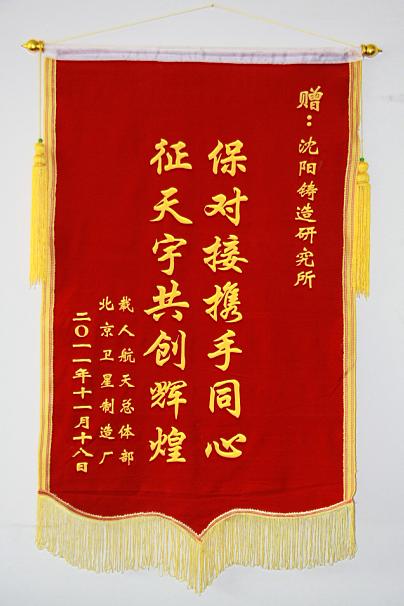 赠：沈阳铸造研究所
保对接携手同心
征天宇共创辉煌
载人航天总体部
北京卫星制造厂
二〇一一年十一月十八日